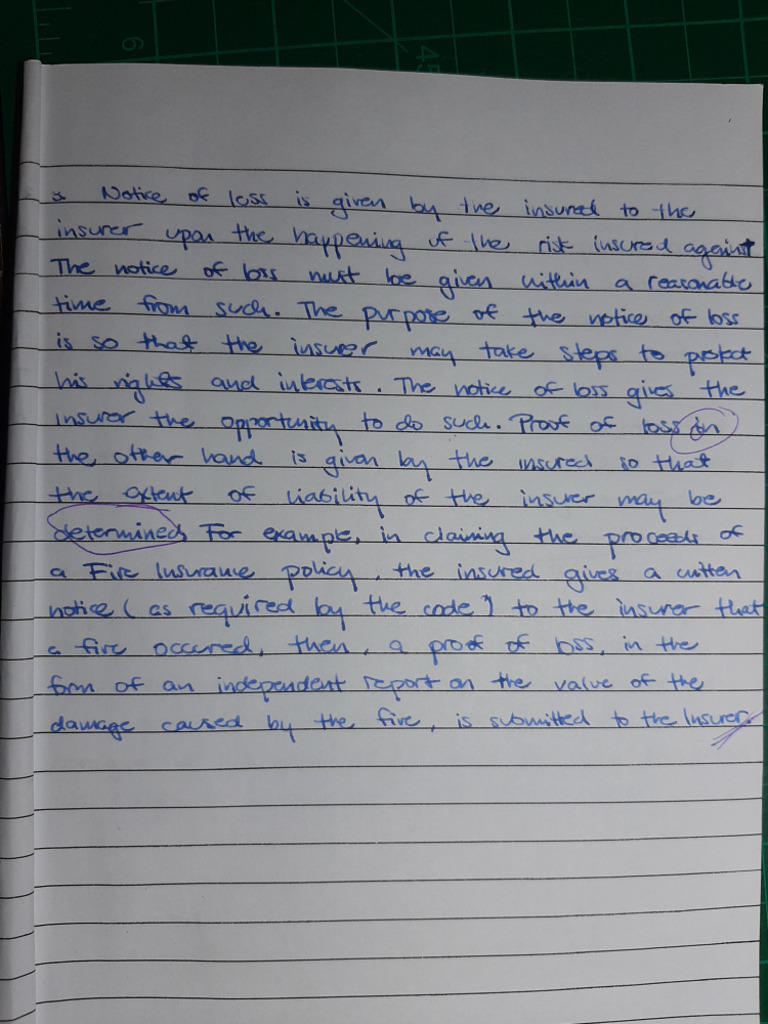 Notice of loss is given by the insured to the
insurer upon the happening of the risk insured against
The notice of loss must be given within a reasonable
time from such. The purpose of the notice of loss
is so that the insurer may take steps to protect
his rights and interests. The notice of loss gives the
insurer the opportunity to do such. Proof of loss on
the other hand is given by the insured so that
the extent of liability of the insurer may be
determined. For example, in claiming the proceeds of
a Fire Insurance policy, the insured gives a written
notice (as required by the code) to the insurer that
a fire occured, then, a proof of loss, in the
form of an independent report on the value of the
damage caused by the fire, is submitted to the Insurer.
6
45